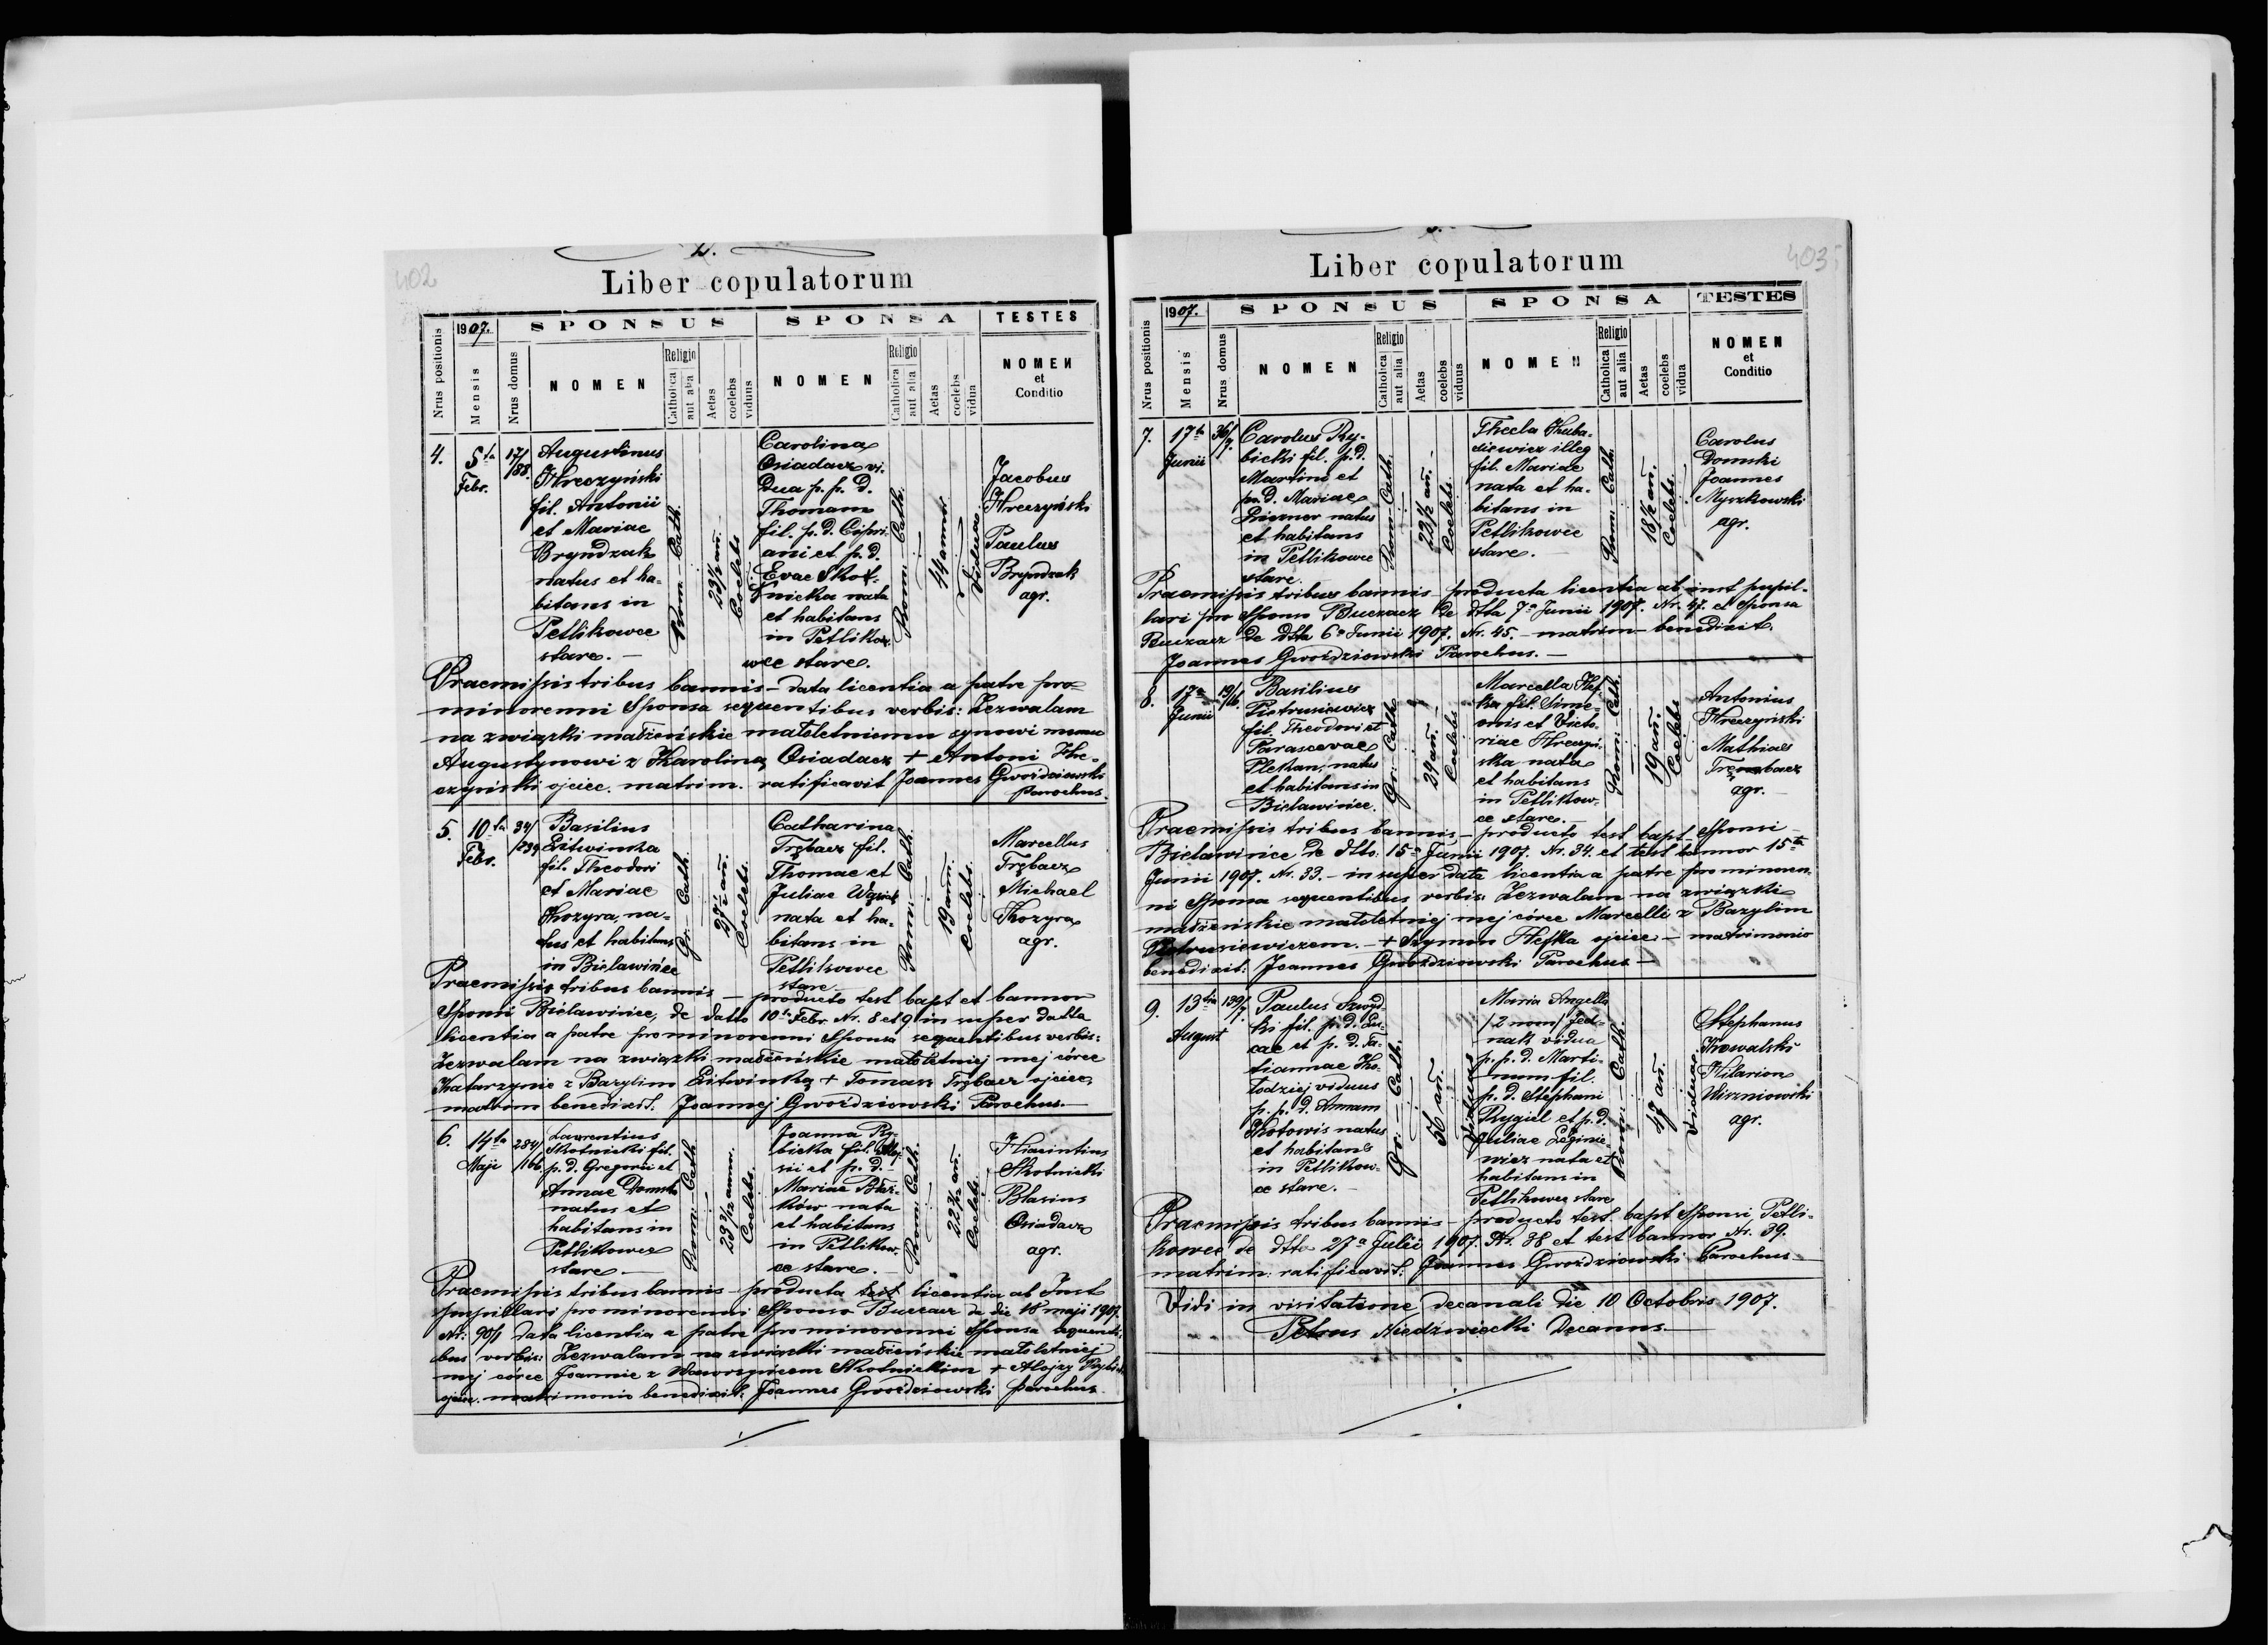 402
2.
Liber copulatorum
Nrus positionis
1907.
Mensis
SPONSUS
Nrus domus
NOMEN
Religio
Catholica
aut alia
Aetas
coelebs
viduus
SPONSA
NOMEN
Religio
Catholica
aut alia
Aetas
coelebs
vidua
TESTES
NOMEN
et
Conditio
4.
5ta
Febr.
17/
88.
Augustinus
Hreczyński
fil. Antonii
et Mariae
Bryndzak
natus et ha-
bitans in
Petlikowce
stare. —
Rom. Cath.
23½ an.
Coelebs
Carolina
Osiadacz vi.
dua p. p. d.
Thomam
fil. p. d. Cipri-
ani et p. d.
Evae Skot-
nicka nata
et habitans
in Petliko-
wce stare.
Rom: Cath.
44 annor.
Vidua
Jacobus
Hreczyński
Paulus
Bryndzak
agr.
Praemissis tribus bannis — data licentia a patre pro
minorenni Sponsa sequentibus verbis: Zezwalam
na związki małżeńskie małoletniemu synowi memu
Augustynowi z Karoliną Osiadacz + Antoni Hre-
czyński ojciec. matrim. ratificavit Joannes Gwoździowski
parochus.
5.
10ta
Febr.
34/
239
Basilius
Litwinka
fil. Theodori
et Mariae
Kozyra, na-
tus et habitans
in Bielawińce
Gr. Cath.
27½ an.
Coelebs.
Catharina
Trębacz fil.
Thomae et
Juliae
nata et ha-
bitans in
Petlikowce
stare —
Rom. Cath.
19 ann.
Coelebs.
Marcellus
Trębacz
Michael
Kozyra
agr.
Praemissis tribus bannis — producto test bapt et bannor
Sponsi Bielawińce, de datto 10ta Febr. Nr. 8 et 9 in super datta
licentia a patre pro minorenni Sponsa sequentibus verbis:
Zezwalam na związki małżeńskie małoletniej mej córce
Katarzynie z Bazylim Litwinką + Tomasz Trębacz ojciec,
matrim benedixit. Joannes Gwoździowski Parochus. —
6.
14ta
Maji
284/
166
Laurentius
Skotnicki fil.
p. d. Gregorii et
Annae Domska
natus et
habitans in
Petlikowce
stare. —
Rom: Cath
23 3/12 annor.
Coelebs.
Joanna Ry-
bicka fil. Aloy-
sii et p. d. —
Mariae Błaż-
ków nata
et habitans
in Petlikow-
ce stare. —
Rom: Cath.
Coelebs.
Hiacintius
Skotnicki
Blasius
Osiadacz
agr.
Praemissis tribus bannis producta test licentia ab Inst
pupillari pro minorenni Sponso Buczacz de die 18 maji 1907.
Nr: 90/1 data licentia a patre pro minorenni Sponsa sequenti-
bus verbis: Zezwalam na związki małżeńskie małoletniej
mej córce Joannie z Wawrzyńcem Skotnickim + Alojzy Rybicki
ojciec. matrimonio benedixit: Joannes Gwoździowski parochus.
403
Liber copulatorum
Nrus positionis
1907.
Mensis
SPONSUS
Nrus domus
NOMEN
Religio
Catholica
aut alia
Aetas
coelebs
viduus
SPONSA
NOMEN
Religio
Catholica
aut alia
Aetas
coelebs
vidua
TESTES
NOMEN
et
Conditio
7.
17ta
Junii
36/
7.
Carolus Ry-
bicki fil. p. d.
Martini et
p. d. Mariae
natus
et habitans
in Petlikowce
stare.
Rom Cath.
23½ an. -
Coelebs.
Thecla Kuba-
siewicz illeg
fil. Mariae
nata et ha-
bitans in
Petlikowce
stare. —
Rom: Cath.
18½ an.
Coelebs.
Carolus
Domski
Joannes
Myszkowski
agr.
Praemissis tribus bannis producta licentia ab inst pupil-
lari pro Sponso Buczacz de dtta 7a Junii 1907. Nr. 47. et Sponsa
Buczacz de dtta 6a Junii 1907. Nr. 45. — matrim — benedixit.
Joannes Gwoździowski Parochus. —
8.
17a
Junii
19/
16.
Basilius
Pietrusiewicz
fil. Theodori et
Parascevae
Plekan, natus
et habitans in
Bielawińce.
Gr: Cath
24 an. -
Coelebs
Marcella Hef-
ka fil. Sime-
onis et Victo-
riae Hreczyń-
ska nata
et habitans
in Petlikow-
ce stare. —
Rom: Cath.
19 an.
Coelebs
Antonius
Hreczyński
Mathias
Trębacz
agr. —
Praemissis tribus bannis — producto test bapt Sponsi —
Bielawińce de dtto: 15a Junii 1907. Nr. 34. et test bannor 15ta
Junii 1907. Nr. 33. — in super data licentia a patre pro minoren-
ni Sponsa sequentibus verbis. Zezwalam na związki
małżeńskie małoletniej mej córce Marcelli z Bazylim
Pietrusiewiczem. — + Szymon Hefka ojciec. — matrimonio
benedixit: Joannes Gwoździowski Parochus —
9.
13tia
August
139/
7.
Paulus Szwyd-
ki fil. p. d. Lu-
cae et p. d. Ta-
tiannae Ko-
łodziej viduus
p. p. d. Annam
Kotowis natus
et habitans
in Petlikow-
ce stare. —
Gr: — Cath.
56 an.
Viduus
Maria Angella
/2 nom/ Jed-
nak vidua
p. p. d. Marti-
num fil.
p. d. Stephani
Rygiel et p. d.
Juliae Leginie-
wicz nata et
habitans in
Petlikowce stare
Rom: — Cath.
47 an.
Vidua
Stephanus
Kowalski
Hilarion
Wiszniowski
agr.
Praemissis tribus bannis — producto test. bapt Sponsi, Petli-
kowce de dtto 27a Julii 1907. Nr. 38 et test bannor Nr. 39.
matrim: ratificavit: Joannes Gwoździowski Parochus —
Vidi in visitatione decanali die 10 Octobris 1907.
Petrus Niedźwiecki Decanus. —